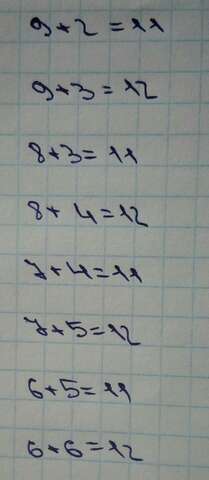 9+2=11
9+3=12
8+3=11
8+4=12
7+4=11
7+5=12
6+5=11
6+6=12